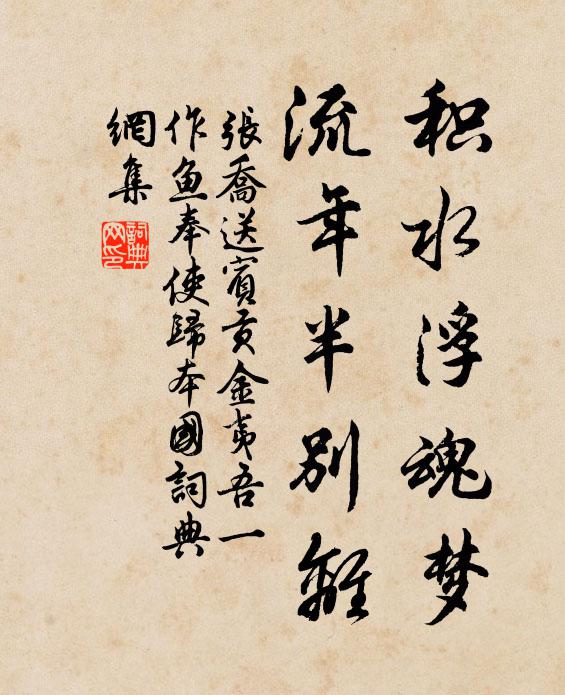 积水浮魂梦
流年半别離
張喬送賓贡金夷吾一
作魚奉使歸本國詞典
網集
詞典
网印